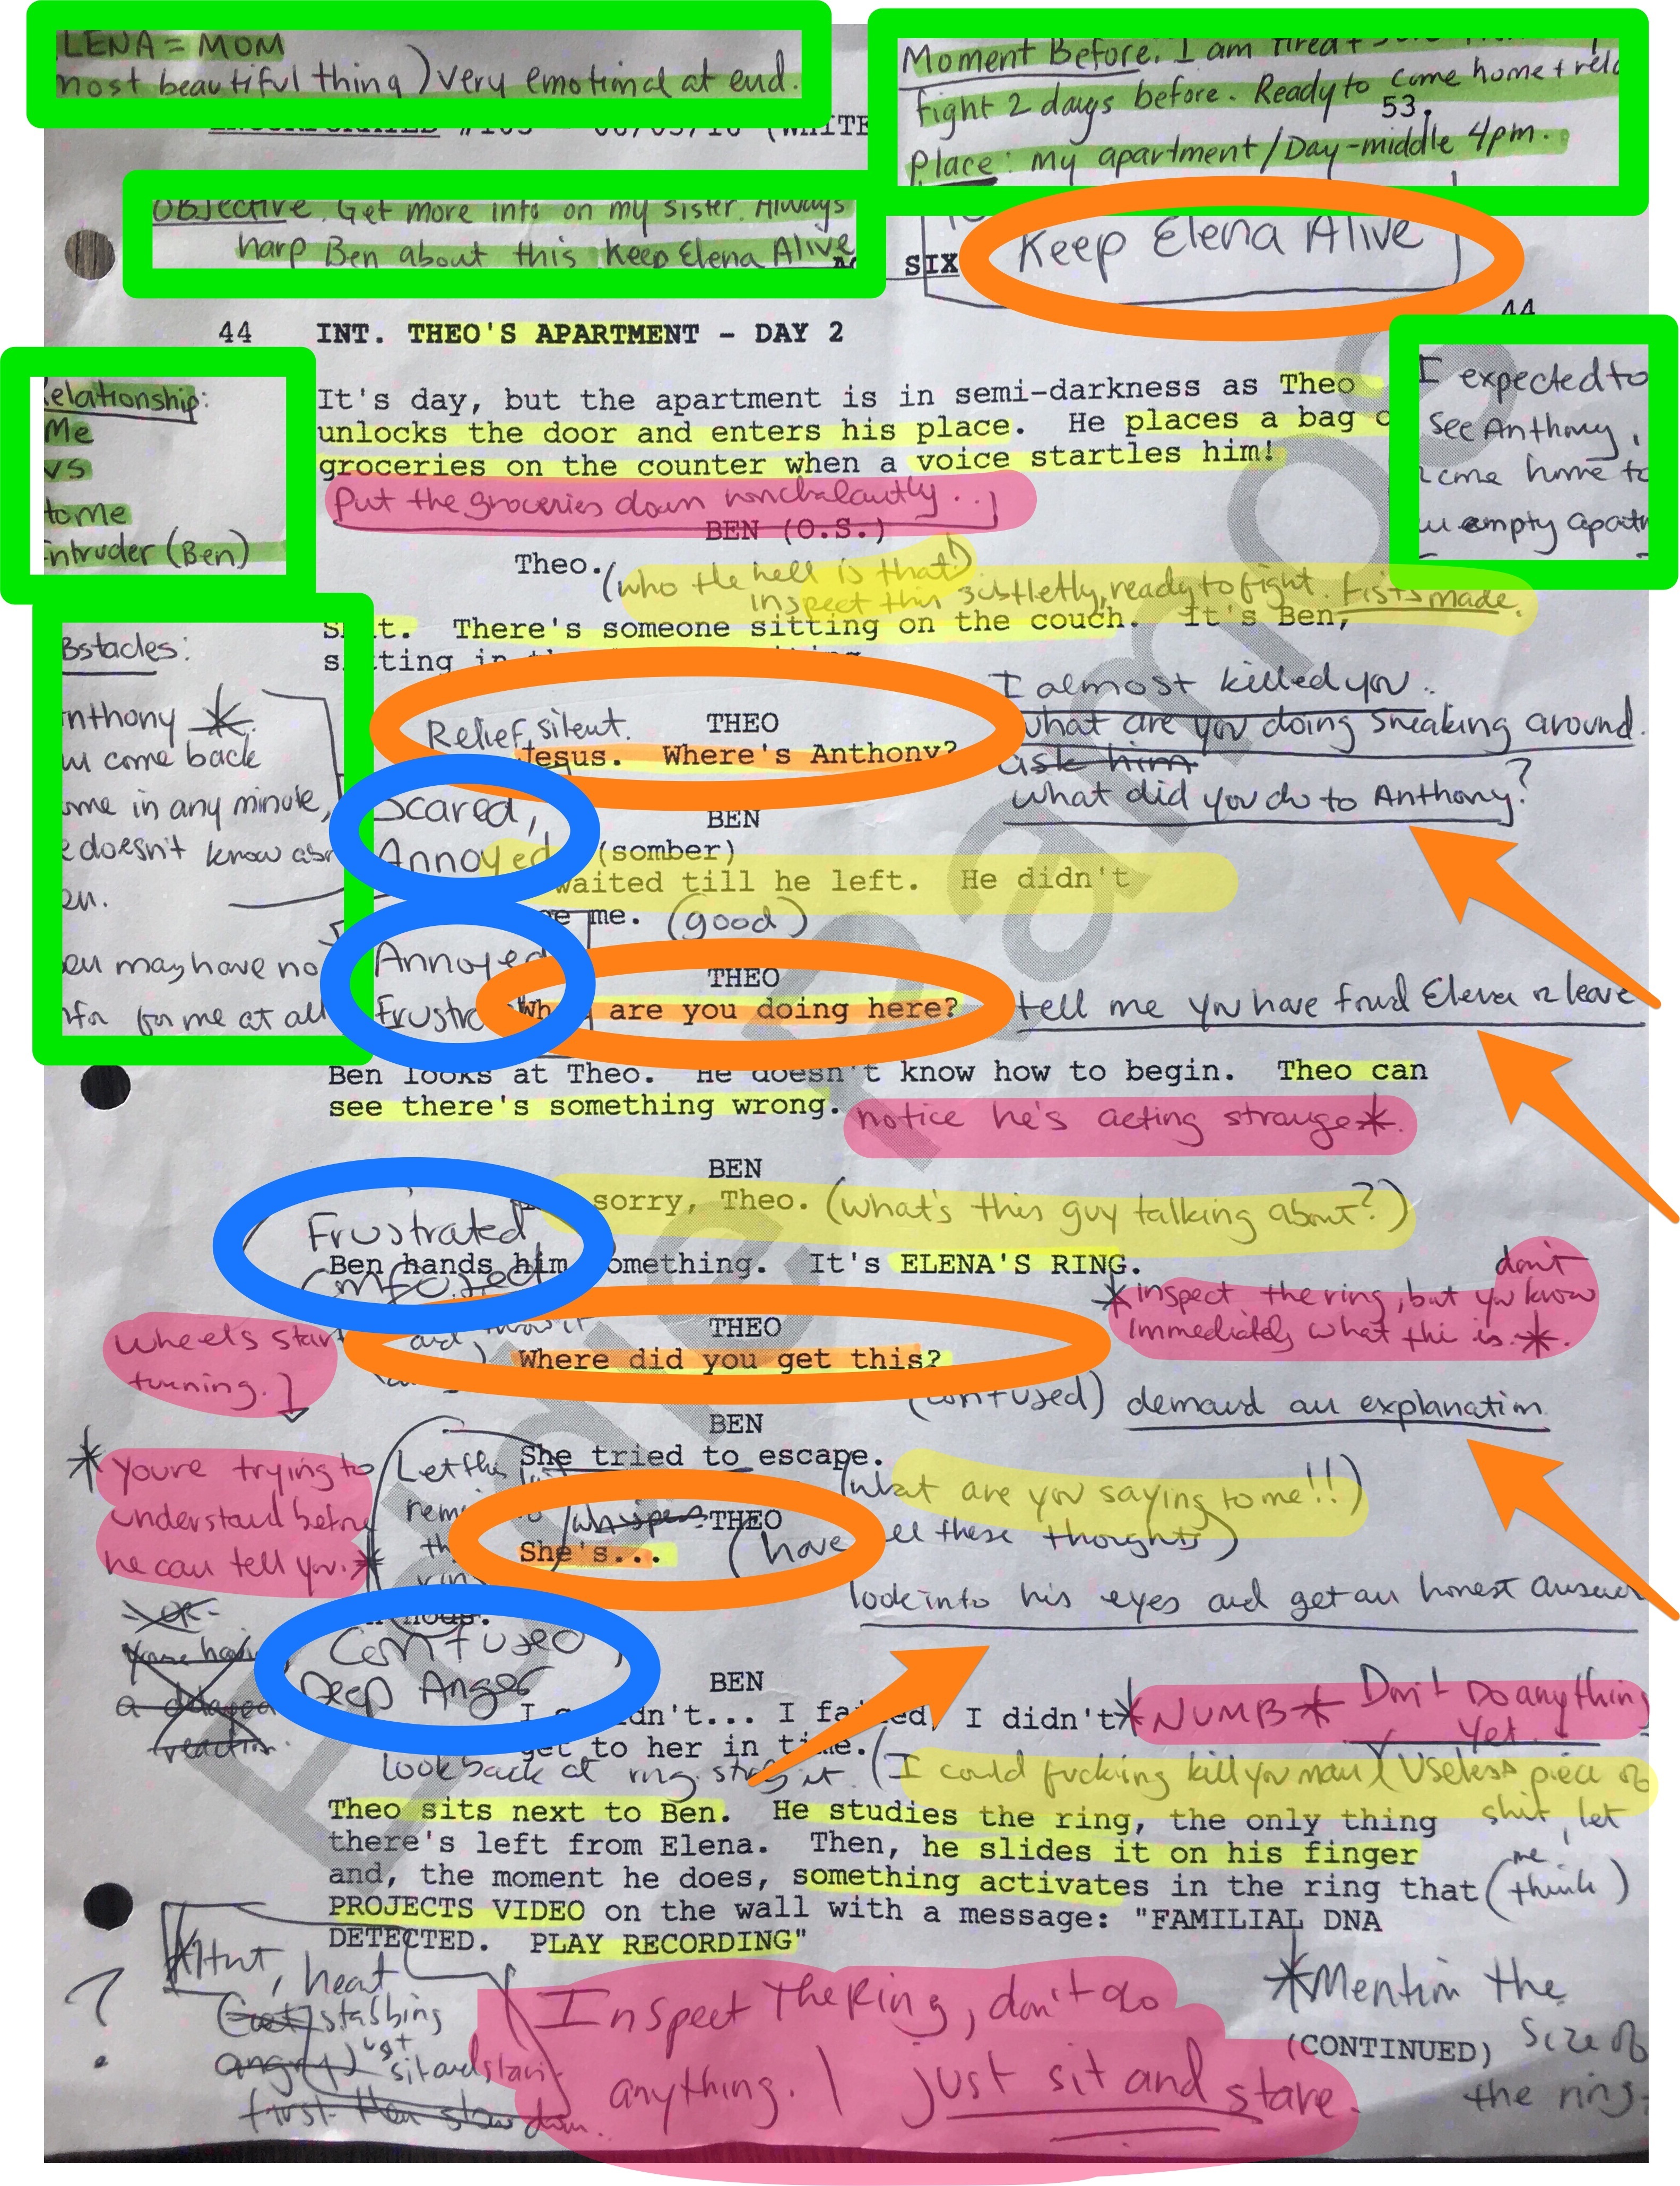 LENA = MOM
most beautiful thing) very emotional at end.
Moment Before. I am tired +
fight 2 days before. Ready to come home +
53.
Place: my apartment/Day-middle 4pm.
Objective. Get more info on my sister. Always
harp Ben about this Keep Elena Alive
SIX
Keep Elena Alive
44
44 INT. THEO'S APARTMENT - DAY 2
elationship:
Me
vs
tome
ntruder (Ben)
It's day, but the apartment is in semi-darkness as Theo
unlocks the door and enters his place. He places a bag o
groceries on the counter when a voice startles him!
Put the groceries down nonchalantly..
I expected to
see Anthony,
come home to
empty apart
BEN (O.S.)
Theo. (who the hell is that!)
inspect this subtletly, ready to fight. fists made.
There's someone sitting on the couch. It's Ben,
bstacles:
nthony
come back
ome in any minute,
e doesn't know
en.
en may have no
nfo for me at all
Relief, silent.
THEO
Jesus. Where's Anthony?
I almost killed you..
what are you doing sneaking around.
ask him
what did you do to Anthony?
Scared,
Annoyed
BEN
(somber)
waited till he left. He didn't
me. (good)
Annoyed
THEO
are you doing here?
tell me you have found Elena or leave
Ben looks at Theo. He doesn't know how to begin. Theo can
see there's something wrong. notice he's acting strange*.
BEN
sorry, Theo. (what's this guy talking about?)
Frustrated
Confused
Ben hands him omething. It's ELENA'S RING.
*inspect the ring, but you don't know
immediately what thi is.*.
wheels start
turning.
THEO
Where did you get this?
(confused) demand an explanation
BEN
She tried to escape.
(what are you saying to me!!)
*youre trying to
understand before
he can tell you.*
Let this
whisper THEO
She's... (have ll these thoughts)
look into his eyes and get an honest answer
-or-
Confused,
Deep Anger
BEN
I didn't *NUMB* Don't Do anything
yet.
get to her in time.
look back at ring (I could fucking kill you man) (Useless piece of
shit, let
me
think)
Theo sits next to Ben. He studies the ring, the only thing
there's left from Elena. Then, he slides it on his finger
and, the moment he does, something activates in the ring that
PROJECTS VIDEO on the wall with a message: "FAMILIAL DNA
DETECTED. PLAY RECORDING"
?
Hurt, heat
stabbing
Inspect The Ring, don't do
anything. just sit and stare.
*Mention the
size of
the ring.
(CONTINUED)